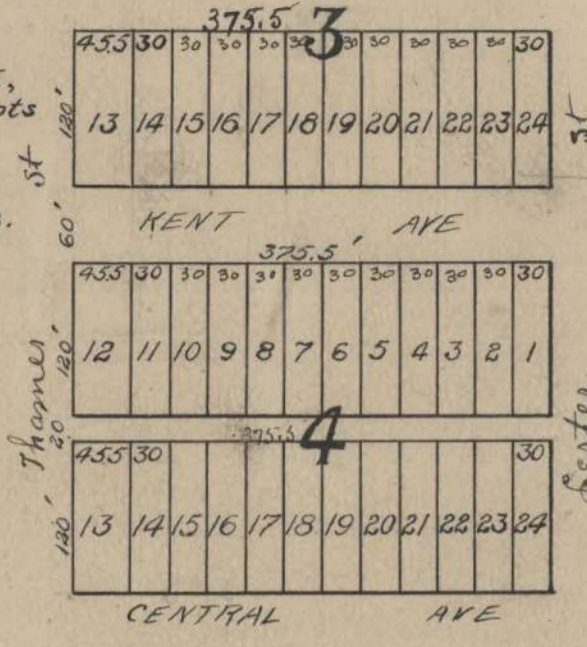 375.5
3
45.5 30 30 30 30 30 30 30 30 30 30 30
120'
13 14 15 16 17 18 19 20 21 22 23 24
St
St
60'
KENT AVE
375.5'
45.5 30 30 30 30 30 30 30 30 30 30 30
120'
12 11 10 9 8 7 6 5 4 3 2 1
Thames
20
375.5
4
45.5 30 30
120'
13 14 15 16 17 18 19 20 21 22 23 24
CENTRAL AVE